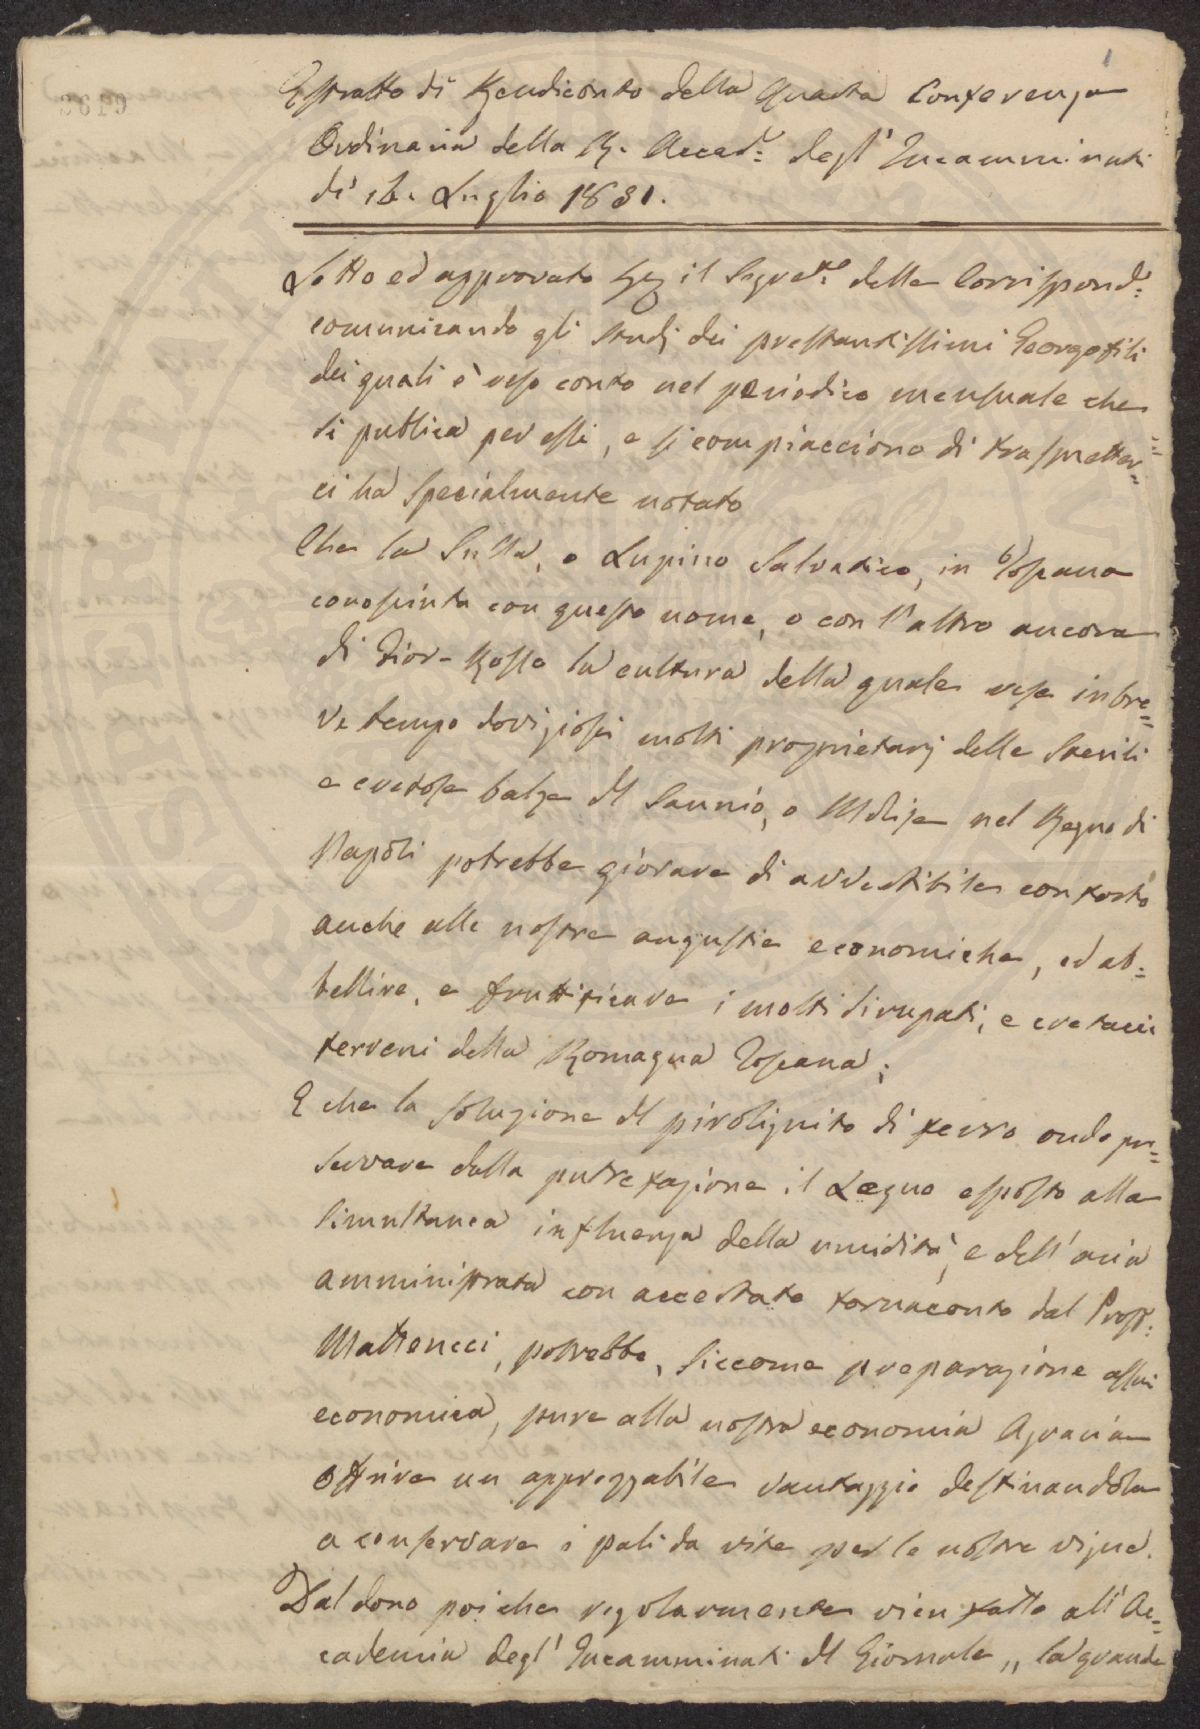 Estratto di Rendiconto della Quarta Conferenza
Ordinaria della R. Accad.: degl' Incamminati
di 16. Luglio 1831.
Letto ed approvato il Segret.° delle Corrispond.:
comunicando gli studj dei prestantissimi Georgofili
dei quali è reso conto nel periodico mensuale che
si publica per essi, e si compiacciono di trasmetter=
ci ha specialmente notato
Che la Sulla, o Lupino Salvatico, in Toscana
conosciuta con questo nome, o con l'altro ancora
di Fior-Rosso la cultura della quale rese in bre=
ve tempo doviziosi molti proprietarj delle sterili
e cretose balze del Sannio, o Molise nel Regno di
Napoli potrebbe giovare di avvertibile conforto
anche alle nostre angustie economiche, ed ab=
bellire, e fruttificare i molti dirupati, e cretacei
terreni della Romagna Toscana;
E che la soluzione del pirolignito di ferro onde pre=
servare dalla putrefazione il Legno esposto alla
simultanea influenza della umidità, e dell'aria
amministrata con accertato tornaconto dal Prof.:
Matteucci, potrebbe, siccome preparazione assai
economica, pure alla nostra economia Agraria
offrire un apprezzabile vantaggio destinandola
a conservare i pali da vite per le nostre vigne.
Dal dono poi che regolarmente vien fatto all'Ac=
cademia degl' Incamminati del Giornale „ la grande